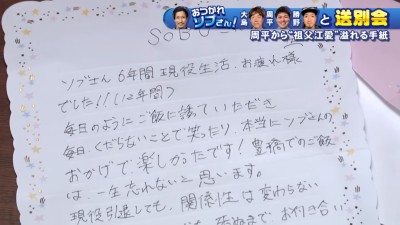 おつかれ
ソブさん!
大島
周平
勝野
と送別会
周平から“祖父江愛”溢れる手紙
ソブさん 6年間現役生活、お疲れ様
でした!!(12年間?)
毎日のようにご飯に誘ていただき
毎日、くだらないことで笑ったり、本当にソブさんの
おかげで楽しかったです!豊橋でのご飯
は、一生忘れないと思います。
現役引退しても、関係性は変わらない
死ぬまで お付き合い